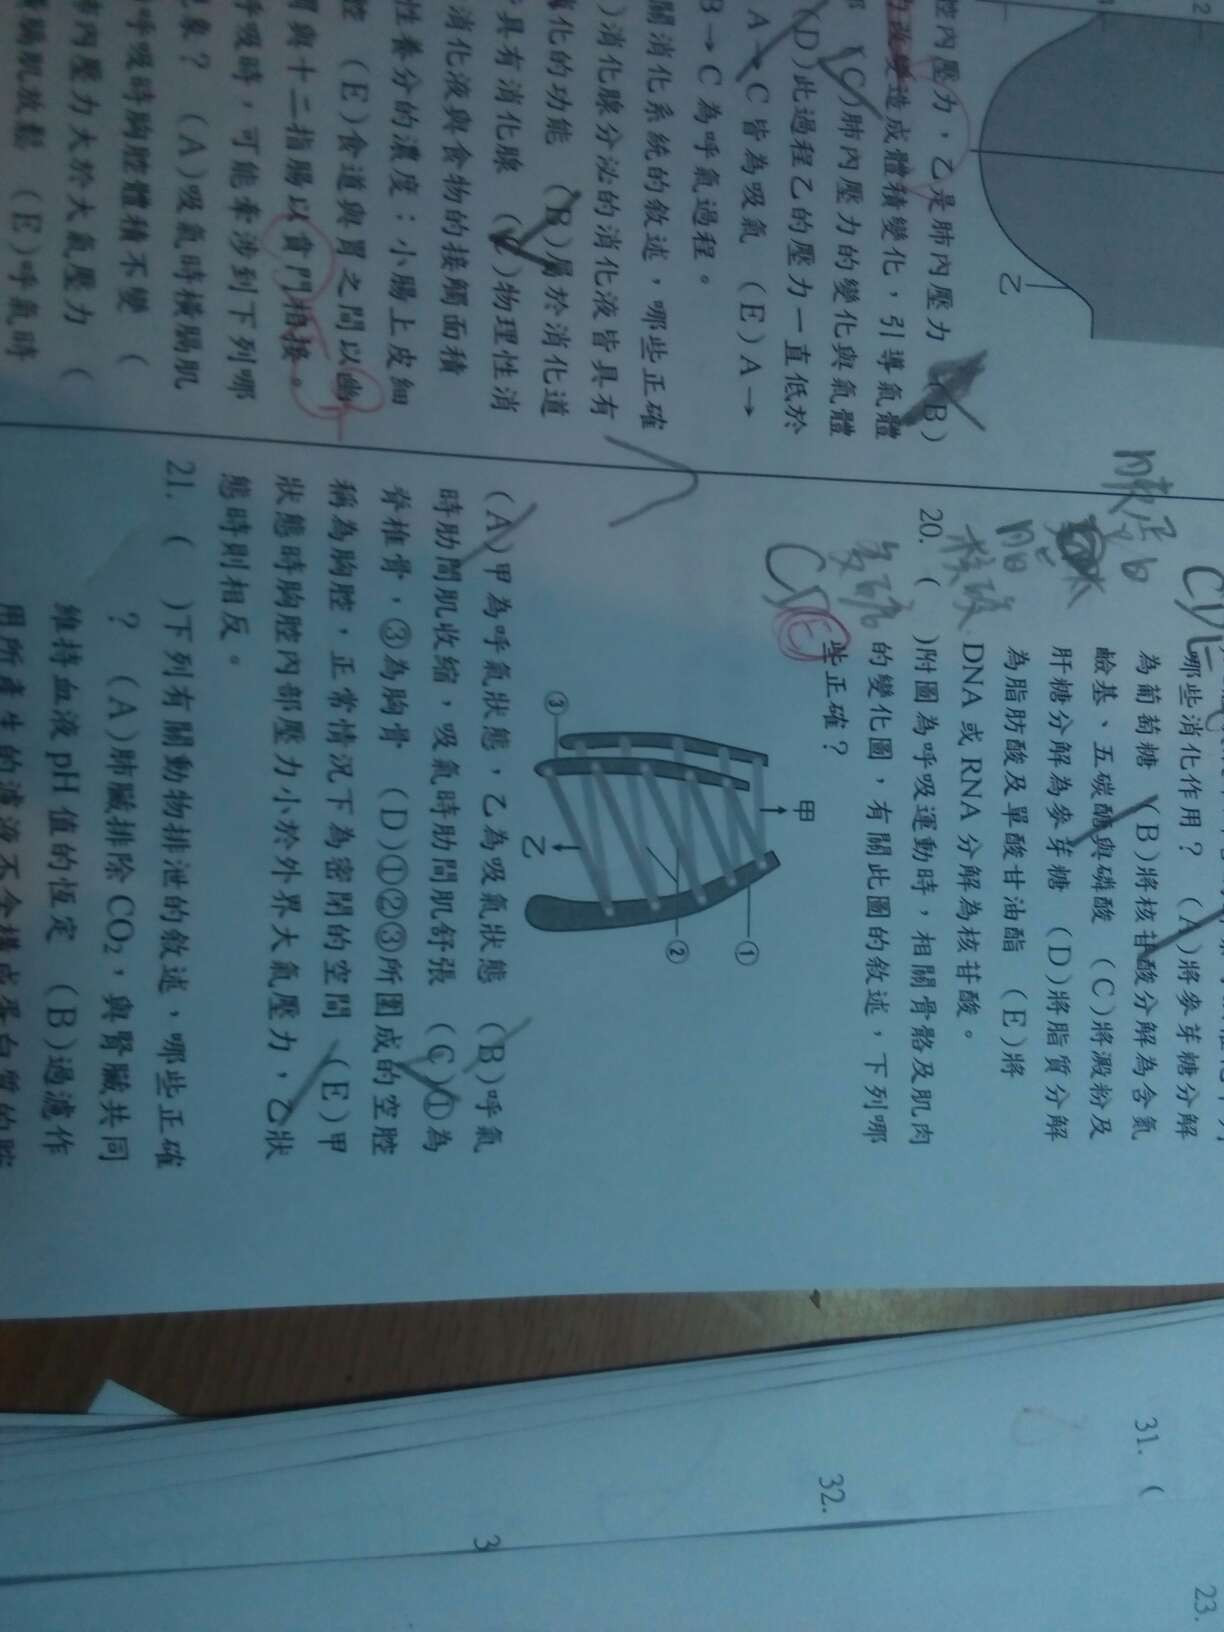 腔內壓力,乙是肺內壓力 (B)
造成體積變化,引導氣體
(C)肺內壓力的變化與氣體
(D)此過程乙的壓力一直低於
A→C皆為吸氣 (E)A→
B→C為呼氣過程。
關消化系統的敘述,哪些正確
)消化腺分泌的消化液皆具有
化的功能 (B)屬於消化道
具有消化腺 )物理性消
消化液與食物的接觸面積
性養分的濃度;小腸上皮細
腔 (E)食道與胃之間以幽
胃與十二指腸以賁門相接。
呼吸時,可能牽涉到下列哪
現象? (A)吸氣時橫膈肌
呼吸時胸腔體積不變 (
內壓力大於大氣壓力 (
膈肌放鬆 (E)呼氣時
乙
CDE
哪些消化作用? (A)將麥芽糖分解
為葡萄糖 (B)將核苷酸分解為含氮
鹼基、五碳醣與磷酸 (C)將澱粉及
肝糖分解為麥芽糖 (D)將脂質分解
為脂肪酸及單酸甘油酯 (E)將
DNA 或 RNA 分解為核苷酸。
20. ( )附圖為呼吸運動時,相關骨骼及肌肉
的變化圖,有關此圖的敘述,下列哪
些正確?
CDE
甲
①
②
③
乙
(A)甲為呼氣狀態,乙為吸氣狀態 (B)呼氣
時肋間肌收縮,吸氣時肋間肌舒張 (C)①為
脊椎骨,③為胸骨 (D)①②③所圍成的空腔
稱為胸腔,正常情況下為密閉的空間 (E)甲
狀態時胸腔內部壓力小於外界大氣壓力,乙狀
態時則相反。
21. ( )下列有關動物排泄的敘述,哪些正確
? (A)肺臟排除 CO₂,與腎臟共同
維持血液 pH 值的恆定 (B)過濾作
用所產生的濾液不含構成蛋白質的
31. (
32.
3
23.